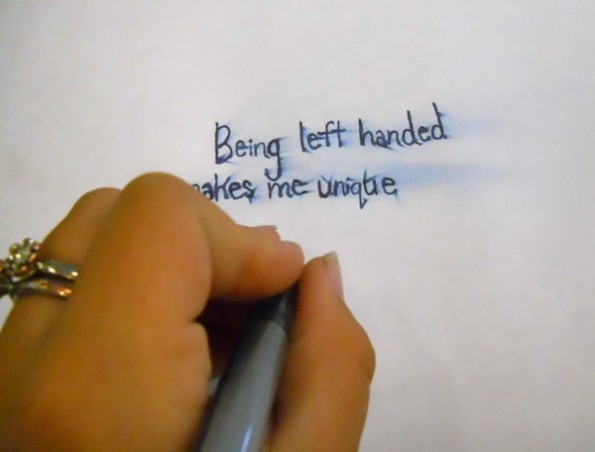 Being left handed
akes me unique